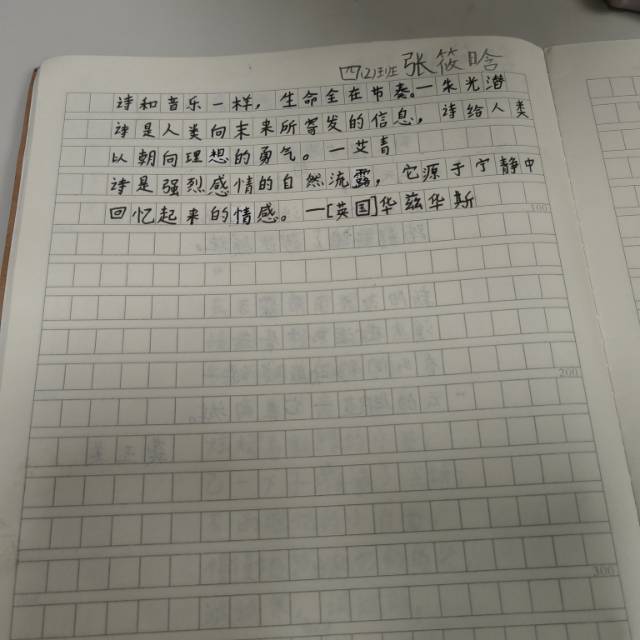 四(2)班 张筱晗
诗和音乐一样，生命全在节奏。—朱光潜
诗是人类向未来所寄发的信息，诗给人类
以朝向理想的勇气。—艾青
诗是强烈感情的自然流露，它源于宁静中
回忆起来的情感。—[英国]华兹华斯
100
200
300